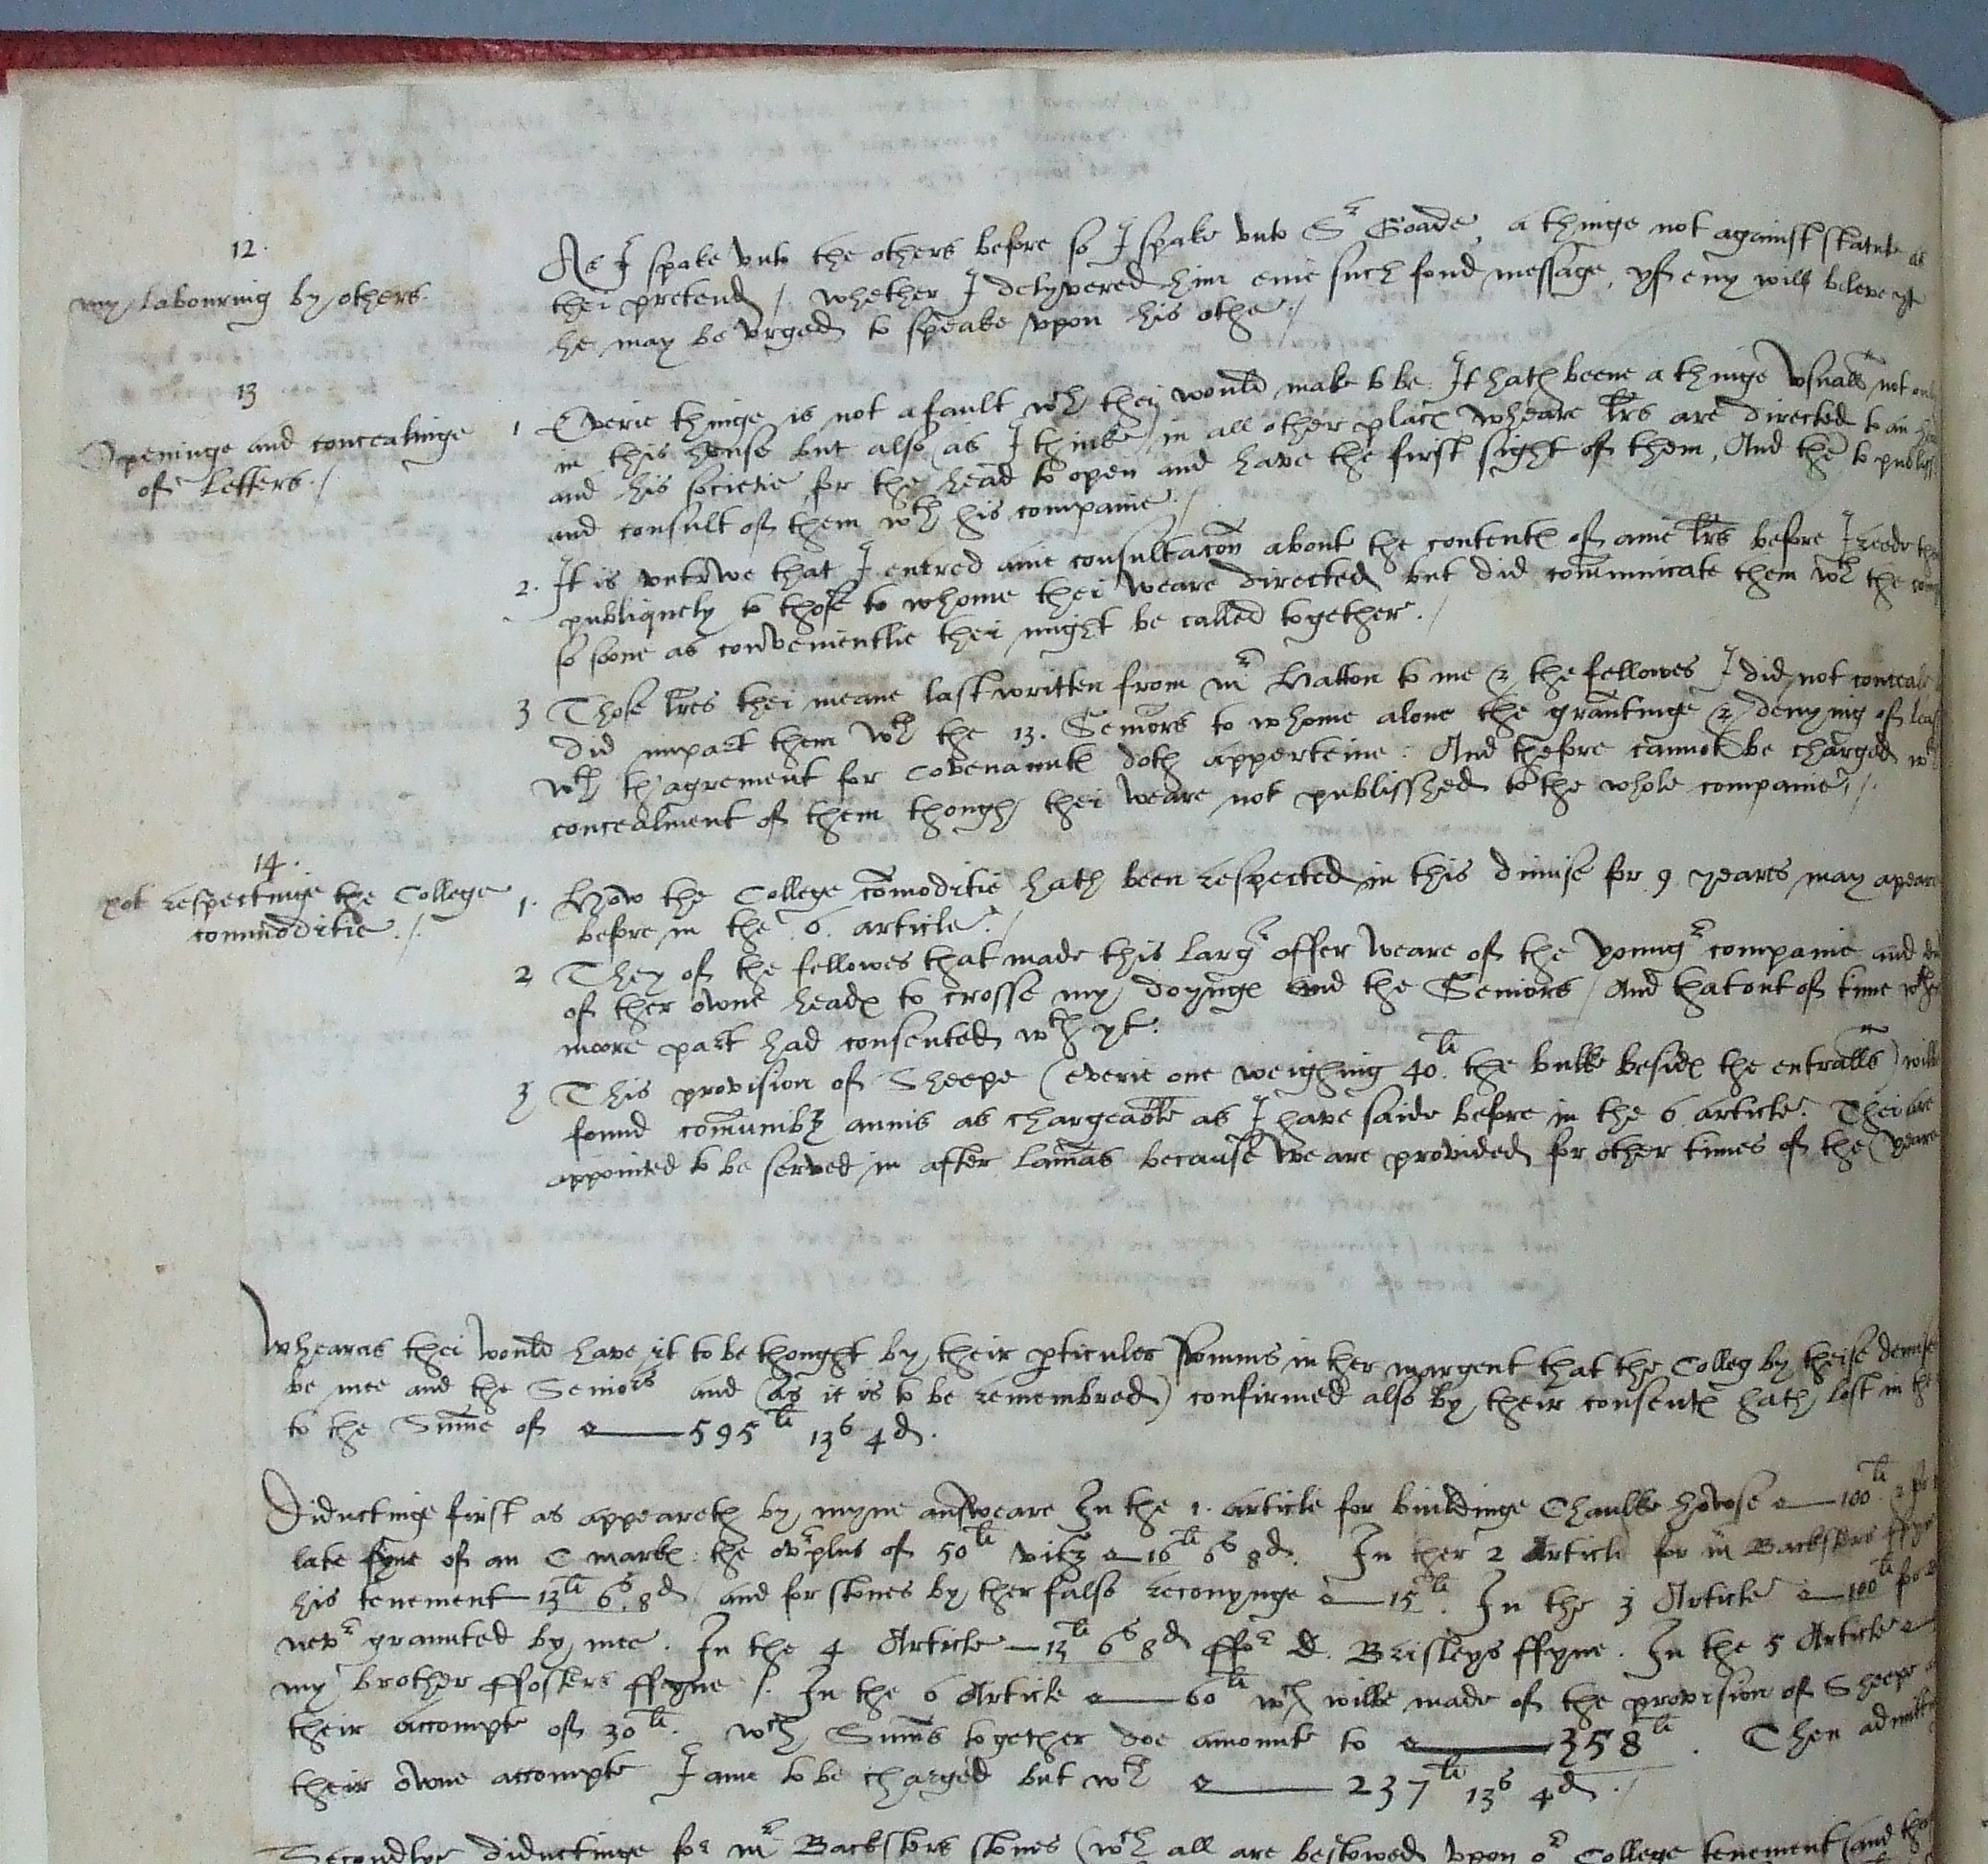 12.
my labouring by others.
As I spake vnto the others before so I spake vnto Sr Goade, a thinge not against statute as
thei pretend / whether I delyvered him enie such fond message, yf eny will beleve yt
he may be vrged to speake vpon his othe /
13
Openinge and concealinge
of letters /
1 Everie thinge is not a fault wch they would make to be. It hath beene a thinge vsuall not onl
in this house but also (as I thinke) in all other places wheare lrs are directed to an
and his societie for the head to open and have the first sight of them, And then to publish
and consult of them wth his companie /
2. It is vntrwe that I entred anie consultacon about the contentes of anie lrs before I reede
publiquely to those to whome thei weare directed but did communicate them wth the
so soone as convenientlie thei might be called together. /
3 Those lres thei meane last written from mr Hatton to me & the fellowes I did not conceale
did impart them wth the 13. Seniors to whome alone the grantinge & denying of
wth th'agrement for covenauntes doth apperteine: And thefore cannot be charged wth
concealment of them though thei weare not publisshed to the whole companie, /.
14.
Not respectinge the College
commoditie. /
1. How the College commoditie hath been respected in this dimise for 9 yeares may apeare
before in the .6. article. /
2 They of the fellowes that made this largr offer weare of the youngr companie and
of ther owne heades to crosse my doynges and the Seniors / And that out of time
moore part had consented wth yt.
3 This provision of Sheepe (everie one weighing 40.li the bulke besides the entralls) will
found communibz annis as chargeable as I have saide before in the 6 article. Thei are
appointed to be served in after lammas because we are provided for other times of the yeare
Wheareas thei would have yt to be thought by their pticuler somms in ther margent that the Colleg by theise demises
be mee and the Seniors and (as it is to be remembred) confirmed also by their consentes hath lost in the
to the Summe of 595li 13s 4d.
Diductinge first as appeareth by myne answeare In the 1. article for buildinge Chaulke howse 100li
late fyne of an C markes: the ovrplus of 50li vitz 16li 6s 8d. In ther 2 Article for mr Backsters ffyne
his tenement 13li 6s. 8d and for stones by ther false reconynge 15li. In the 3 Article 100li for
nevr graunted by mee. In the 4 Article 13li 6s 8d ffor D. Brisleys ffyne. In the 5 Article
my brother ffosters ffyne /. In the 6 Article 60li wch wilbe made of the provision of Sheepe
their accompte of 30li. wch Summs together doe amounte to 358li. Then admitt
their owne accompte I ame to be charged but wth 237li 13s 4d. /
Secondlye diductinge for mr Backsters stones (wch all are bestowed vpon or College tenement (and